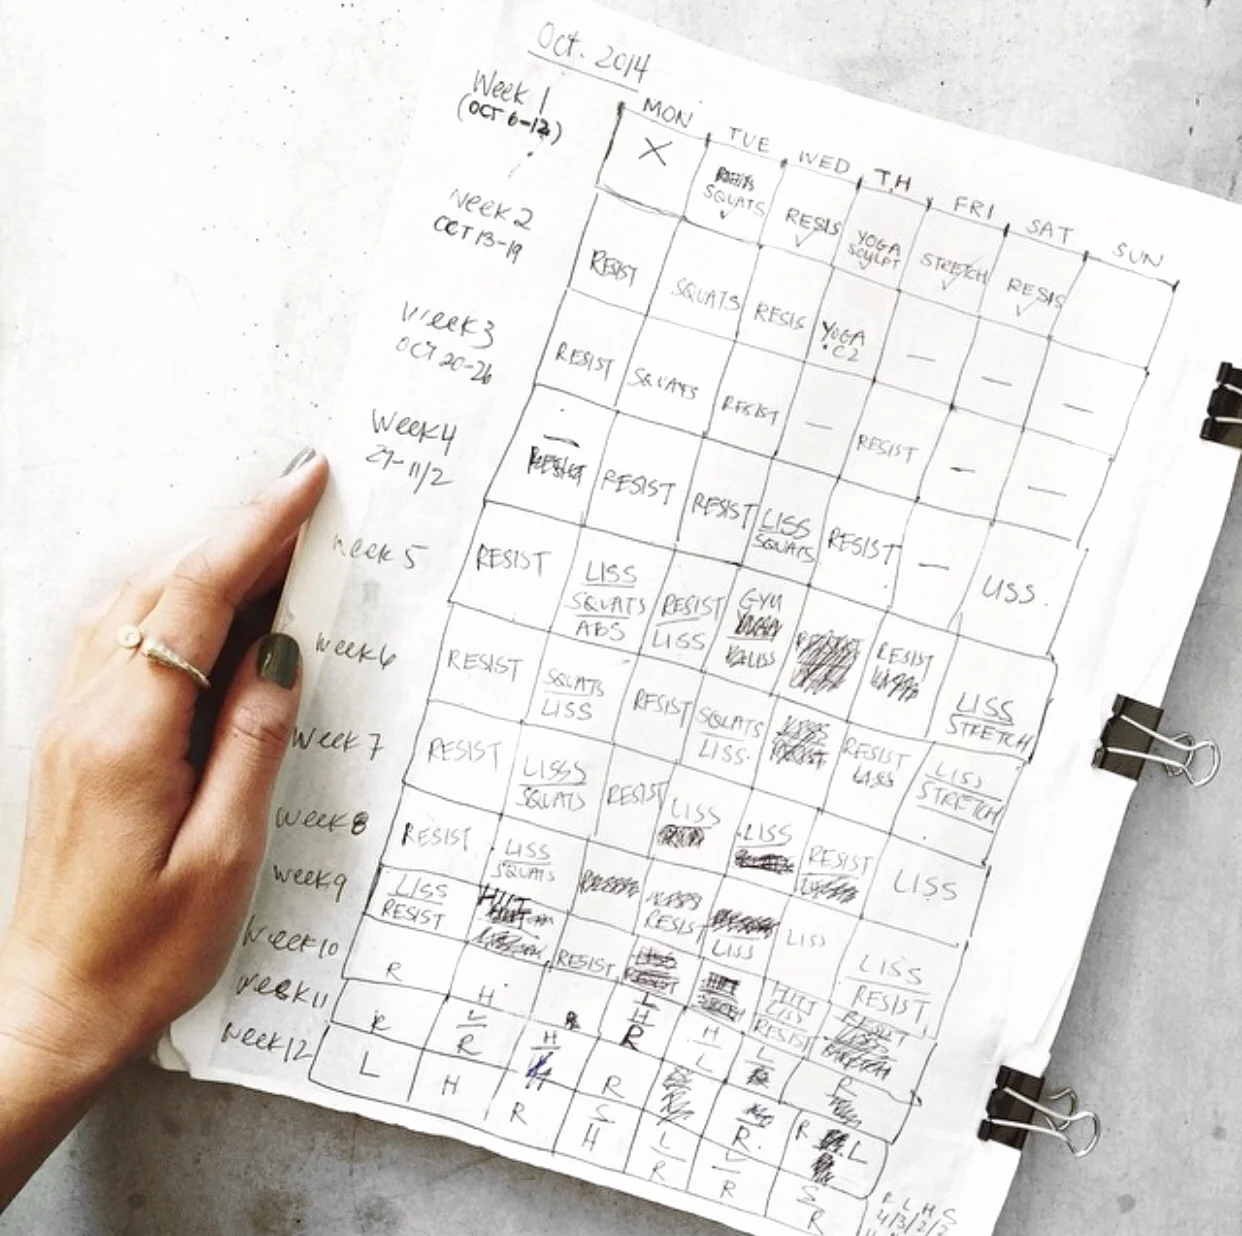 Oct. 2014
MON TUE WED TH FRI SAT SUN
Week 1
(OCT 6-12)
X
SQUATS
RESIS
YOGA
SCULPT
STRETCH
RESIS
Week 2
OCT 13-19
RESIST
SQUATS
RESIS
YOGA
C2
—
—
—
Week 3
OCT 20-26
RESIST
SQUATS
RESIST
—
RESIST
—
—
Week 4
27-11/2
—
RESIST
RESIST
LISS
SQUATS
RESIST
—
LISS
Week 5
RESIST
LISS
SQUATS
ABS
RESIST
LISS
GYM
RESIST
LISS
STRETCH
Week 6
RESIST
SQUATS
LISS
RESIST
SQUATS
LISS
RESIST
LISS
LISS
STRETCH
Week 7
RESIST
LISSS
SQUATS
RESIST
LISS
LISS
RESIST
LISS
Week 8
RESIST
LISS
SQUATS
RESIST
LISS
LISS
LISS
RESIST
Week 9
LISS
RESIST
HIIT
RESIST
HIIT
LISS
RESIST
Week 10
R
H
L
H
R
H
L
L
R
Week 11
R
L
R
H
R
R
R L
Week 12
L
H
R
S
H
L
R
L
R
S
R
R L H S
4/3/2/2